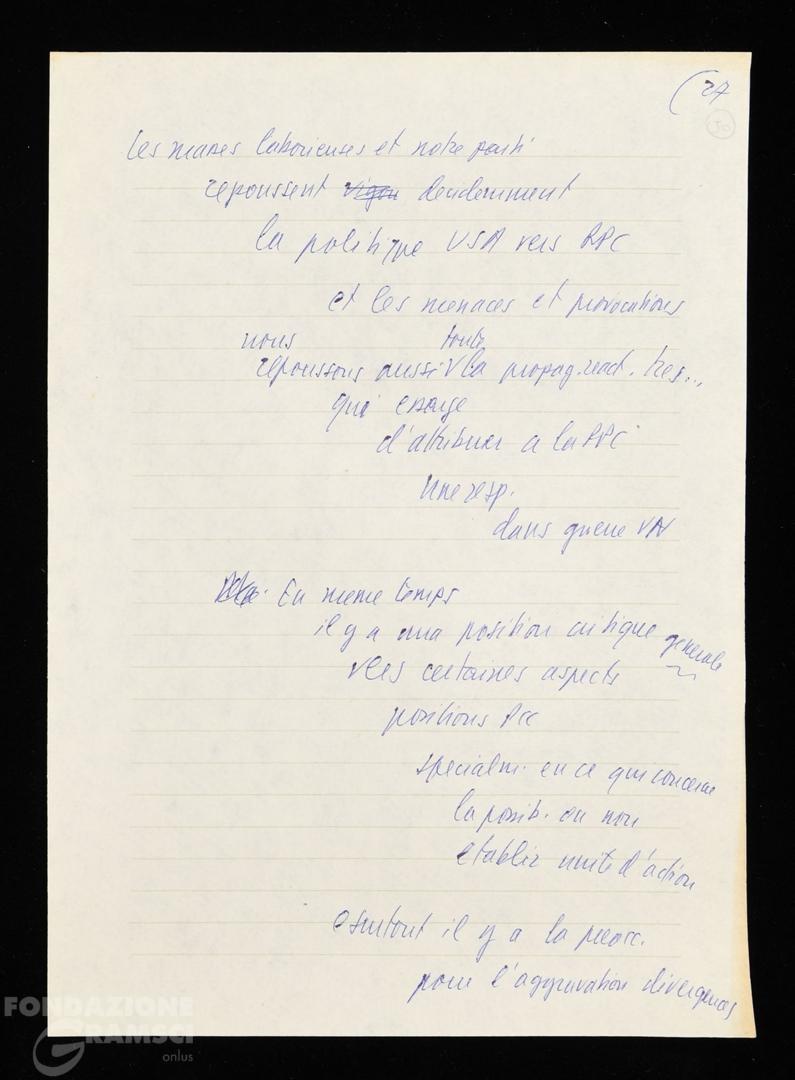 (27
50
les masses laborieuses et notre parti
repoussent vigou decidemment
la politique USA vers RPC
et les menaces et provocations
nous toute
repoussons aussi V la propag. react.
qui essaye
d'attribuer a la RPC
une resp.
dans guerre VN
En meme temps
il y a una position critique generale
vers certaines aspects
positions PCC
specialm. en ce qui concerne
la possib. ou non
etablir unite d'action
esurtout il y a la preocc.
pour l'aggravation divergences
FONDAZIONE
GRAMSCI
onlus